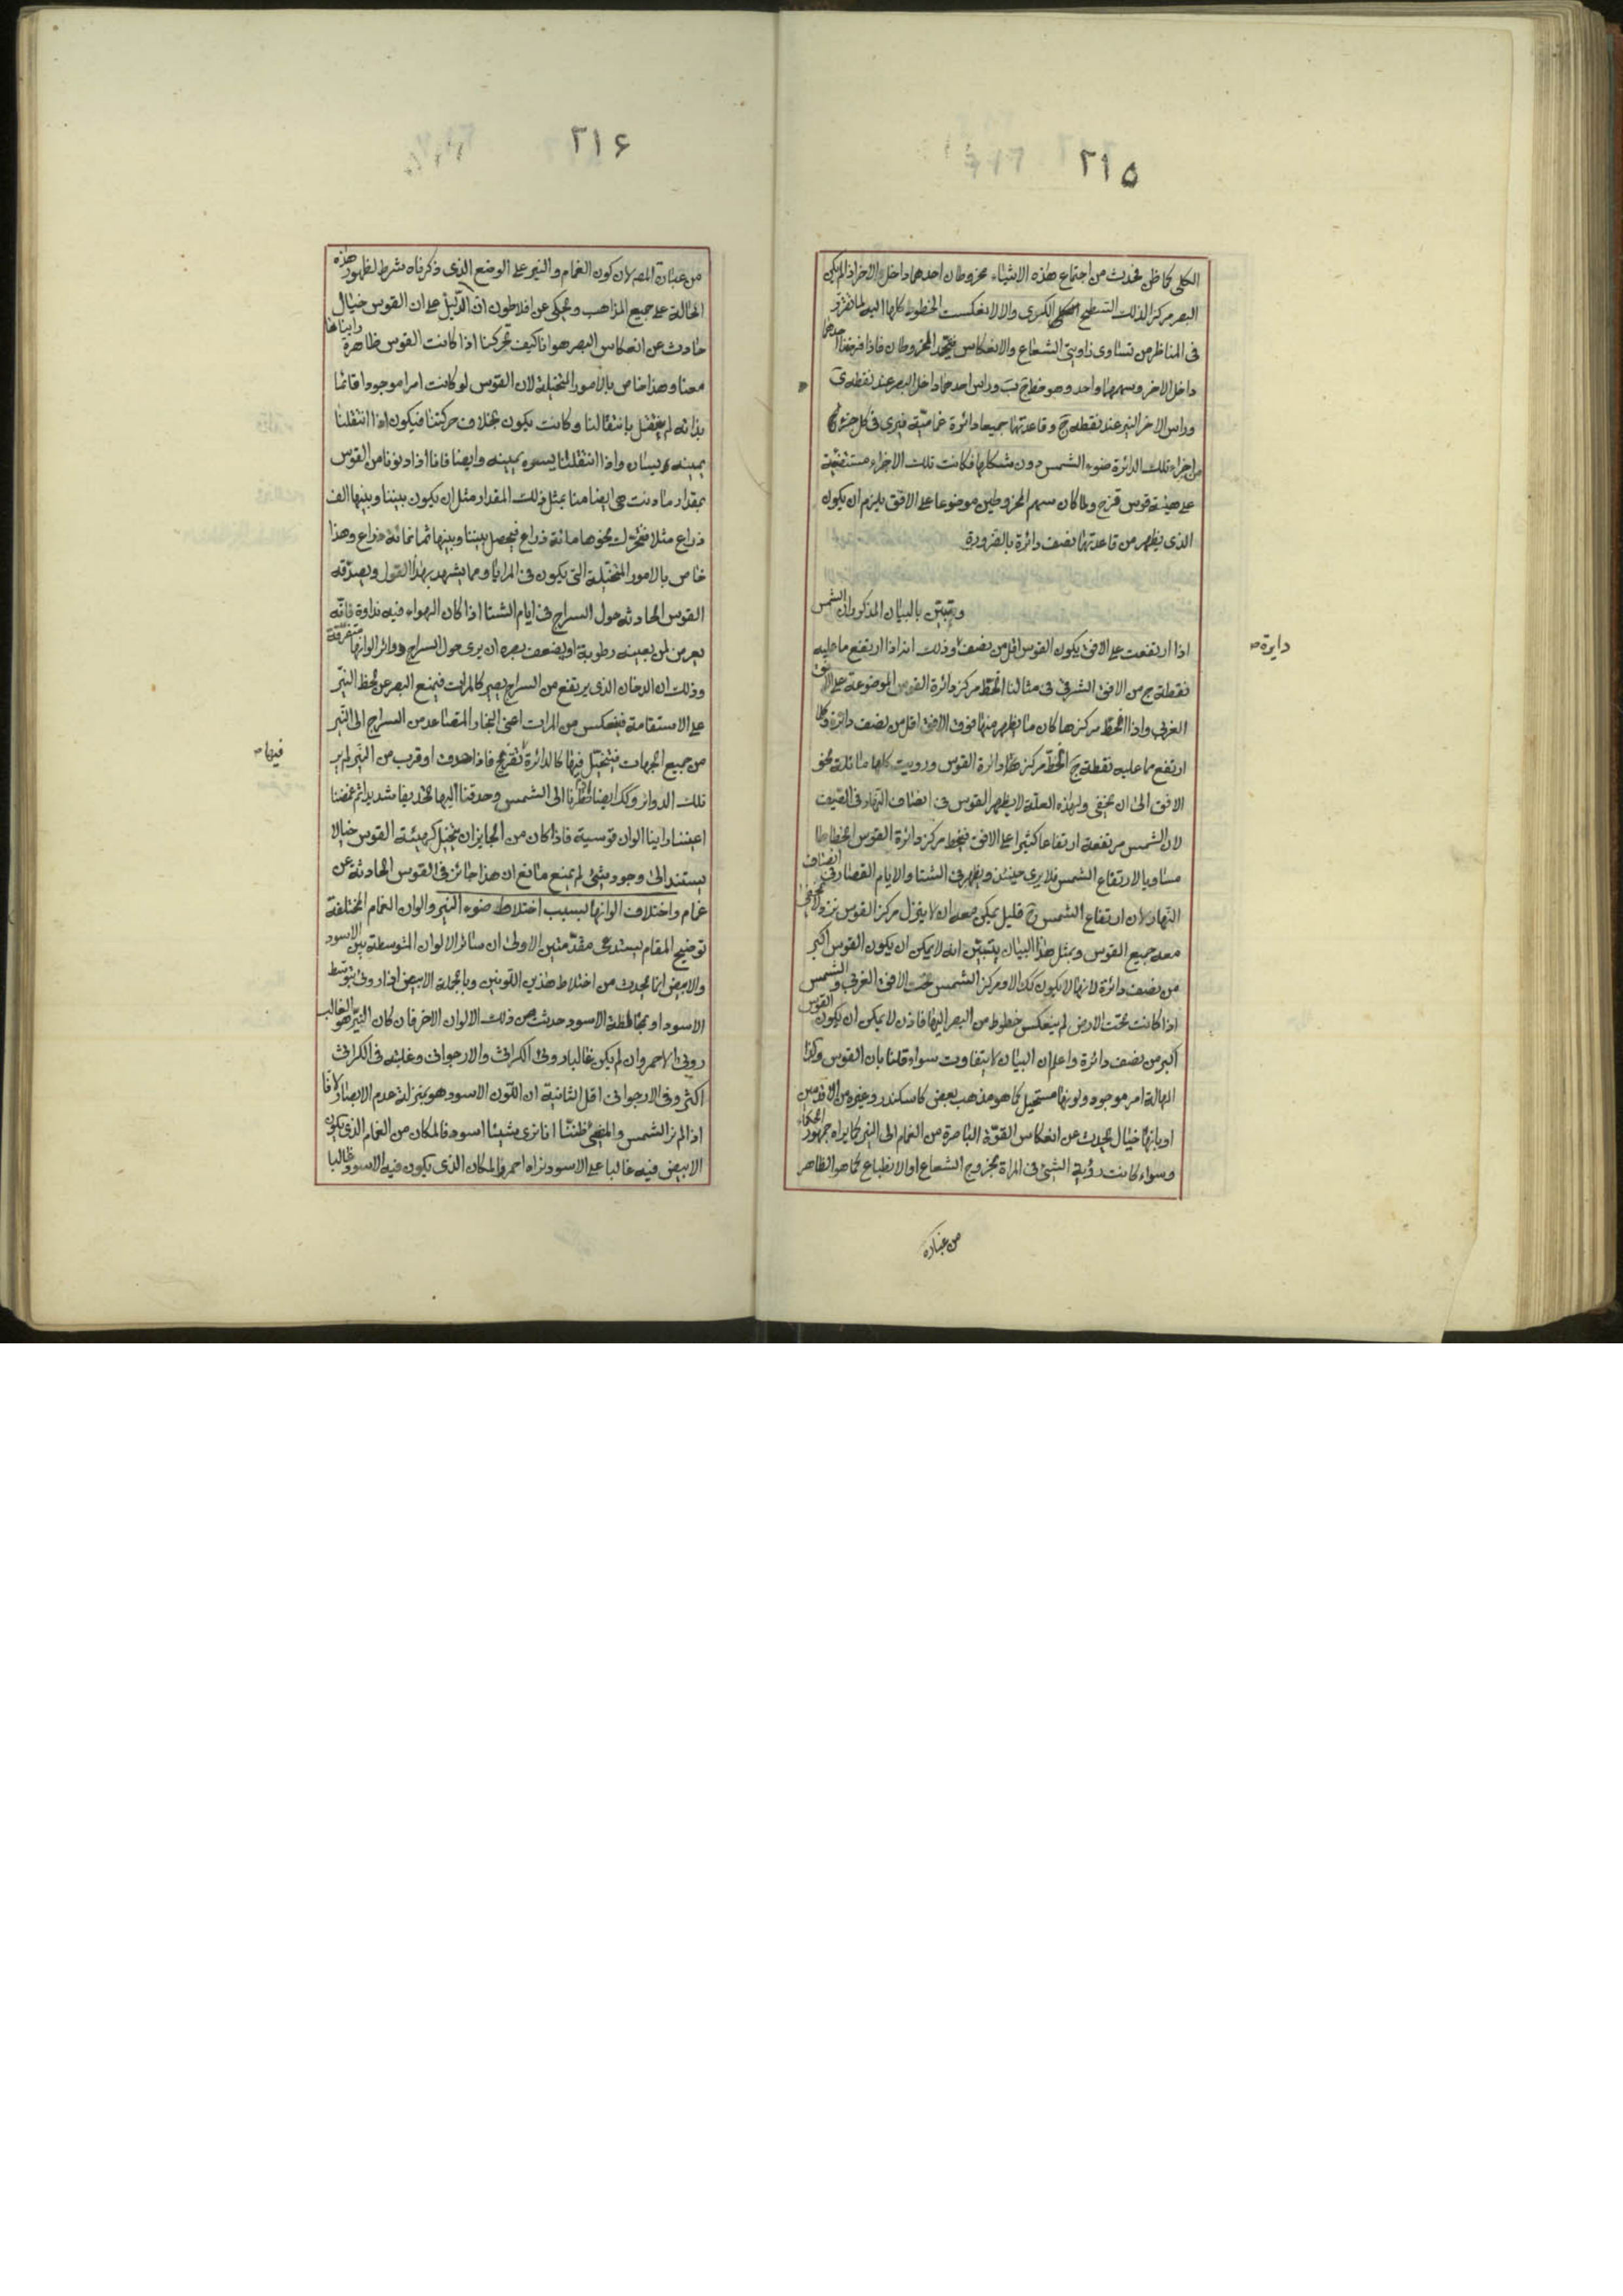 ٢١٥
الكلى كما ظن فحدث من اجتماع هذه الاشياء مخروطان احدهما داخل الاخر اذ لم يكن
البصر مركزا لذلك السطح الكرى والا لانعكست الخطوط كلها اليه لما تقرر
فى المناظر من تساوى زاويتى الشعاع والانعكاس فيتحد المخروطان فاذا فرضنا احدهما
داخل الاخر وسهمهما واحد وهو خط ج ب وراس احدهما داخل البصر عند نقطة ب
وراس الاخر النير عند نقطة ج وقاعدتهما جميعا دائرة غمامية فيرى فى كل جزء
من اجزاء تلك الدائرة ضوء الشمس دون شكلها فكانت تلك الاجزاء مستضيئة
على هيئة قوس قزح ولما كان سهم المخروطين موضوعا على الافق يلزم ان يكون
الذى يظهر من قاعدتهما نصف دائرة بالضرورة
ويتبين بالبيان المذكور ان الشمس
اذا ارتفعت على الافق يكون القوس اقل من نصف وذلك انه اذا ارتفع ما عليه
دايرة صـ
نقطة ج من الافق الشرقى فى مثالنا انحط مركز دائرة القوس الموضوعة على الافق
الغربى واذا انحط مركزها كان ما يظهر منها فوق الافق اقل من نصف دائرة وكلما
ارتفع ما عليه نقطة ج انحط مركز دائرة القوس ورويت كلها مائلة نحو
الافق الى ان يخفى ولهذه العلة لا يظهر القوس فى انصاف النهار فى الصيف
لان الشمس مرتفعة ارتفاعا كثيرا على الافق فينحط مركز دائرة القوس انحطاطا
مساويا لارتفاع الشمس فلا يرى حينئذ ويظهر فى الشتا والايام القصار فى انصاف
النهار لان ارتفاع الشمس ح قليل يمكن معه ان لا ينزل مركز القوس نزولا يخفى
معه جميع القوس وبمثل هذا البيان يتبين انه لا يمكن ان يكون القوس اكبر
من نصف دائرة لانها لا يكون كك الا ومركز الشمس تحت الافق الغربى والشمس
اذا كانت تحت الارض لم ينعكس خطوط من البصر اليها فاذن لا يمكن ان يكون القوس
اكبر من نصف دائرة واعلم ان البيان لا يتفاوت سواء قلنا بان القوس وكذا
الهالة امر موجود ولونها مستحيل كما هو مذهب بعض كاسكندر وغيره من الاقدمين
او بانها خيال يحدث عن انعكاس القوة الباصرة من الغمام الى النير كما يراه جمهور الحكماء
وسواء كانت رؤية الشئ فى المراة بخروج الشعاع او الانطباع كما هو الظاهر
من عبارة
٢١۶
من عبارة المص لان كون الغمام والنير على الوضع الذى ذكرناه شرط لظهور هذه
الحالة على جميع المذاهب ويحكى عن افلاطون ان الدليل على ان القوس خيال
حادث عن انعكاس البصر هو انا كيف تحركنا اذا كانت القوس ظاهرة رايناها
معنا وهذا خاص بالامور المتخيلة لان القوس لو كانت امرا موجودا قائما
بذاته لم ينتقل بانتقالنا وكانت يكون بخلاف حركتنا فيكون اذا انتقلنا
يمينه يسار واذا انتقلنا يسره يمينه وايضا فانا اذا دنونا من القوس
بمقدار ما دنت هى ايضا منا بمثل ذلك المقدار مثل ان يكون بيننا وبينها الف
ذراع مثلا فنتحرك نحوها مائة ذراع فيحصل بيننا وبينها ثمانمائة ذراع وهذا
خاص بالامور المتخيلة التى يكون فى المرايا ومما يشهد بهذا القول ويصدقه
القوس الحادثه حول السراج فى ايام الشتا اذا كان الهواء فيه نداوة فانه
يعرض لمن بعينه رطوبة او يضعف بصره ان يرى حول السراج دوائر الوانها متفرقة
وذلك ان الدخان الذى يرتفع من السراج يصير كالمرات فيمنع البصر عن لحظ النير
على الاستقامة فينعكس من المرات اعنى البخار المتصاعد من السراج الى النير
من جميع الجهات فيتخيل فيها كالدائرة تقزح فاذا هدف او قرب من النير لم ير
فيها صـ
تلك الدوائر وكك ايضا اذا نظرنا الى الشمس وحدقنا اليها تحديقا شديدا ثم غمضنا
اعيننا راينا الوان قوسية فاذا كان من الجايز ان يتخيل كهيئة القوس خيالا
يستند الى وجود شئ لم يمنع مانع ان هذا جائز فى القوس الحادثة عن
غمام واختلاف الوانها بسبب اختلاط ضوء النير والوان الغمام المختلفة
توضيح المقام يستدعى مقدمتين الاولى ان سائر الالوان المتوسطة بين الاسود
والابيض انما يحدث من اختلاط هذين اللونين وبالجملة الابيض اذا روى بتوسط
الاسود او بمخالطة الاسود حدث من ذلك الالوان الاخر فان كان النير هو الغالب
روى الاحمر وان لم يكن غالبا روى الكراثى والارجوانى وغلبته فى الكراثى
اكثر وفى الارجوانى اقل الثانية ان اللون الاسود هو بمنزلة عدم الابصار لانا
اذا لم نر الشمس والمضئ ظننا انا نرى شيئا اسود فالمكان من الغمام الذى يكون
الابيض فيه غالبا على الاسود نراه احمر والمكان الذى يكون فيه الاسود غالبا